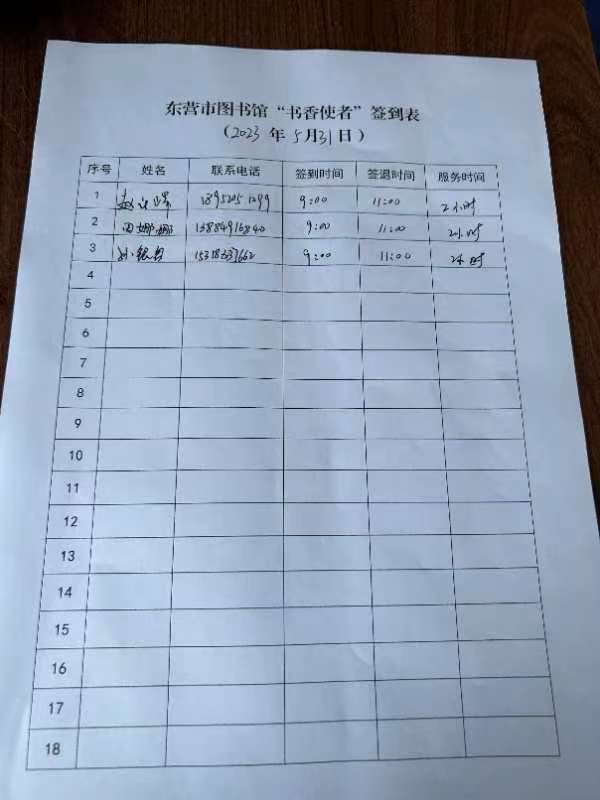 东营市图书馆“书香使者”签到表
（2023 年 5月31日）
序号 姓名 联系电话 签到时间 签退时间 服务时间
1 9:00 11:00 2小时
2 娜娜 13884916840 9:00 11:00 2小时
3 9:00 11:00 2小时
4
5
6
7
8
9
10
11
12
13
14
15
16
17
18